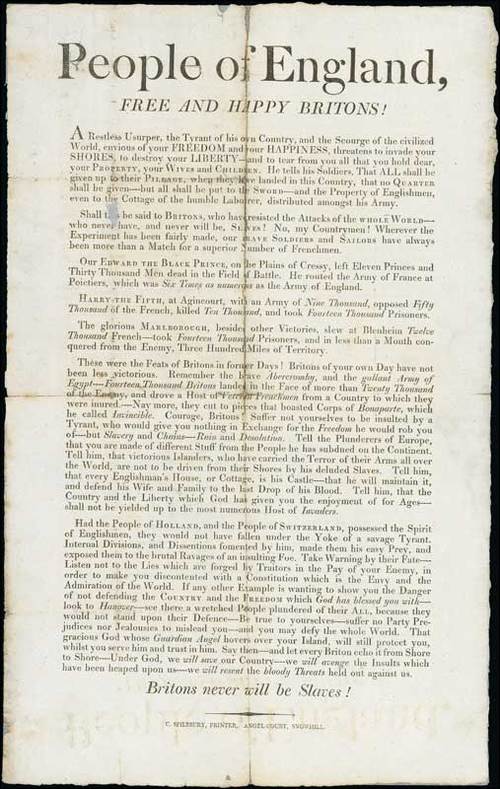 People of England,
FREE AND HAPPY BRITONS!
A Restless Usurper, the Tyrant of his own Country, and the Scourge of the civilized
World, envious of your FREEDOM and your HAPPINESS, threatens to invade your
SHORES, to destroy your LIBERTY—and to tear from you all that you hold dear,
your PROPERTY, your WIVES and CHILDREN. He tells his Soldiers, That ALL shall be
given up to their PILLAGE, when they have landed in this Country, that no QUARTER
shall be given—but all shall be put to the SWORD—and the Property of Englishmen,
even to the Cottage of the humble Labourer, distributed amongst his Army.
Shall this be said to BRITONS, who have resisted the Attacks of the WHOLE WORLD—
who never have, and never will be, SLAVES! No, my Countrymen! Wherever the
Experiment has been fairly made, our BRAVE SOLDIERS and SAILORS have always
been more than a Match for a superior Number of Frenchmen.
Our EDWARD THE BLACK PRINCE, on the Plains of Cressy, left Eleven Princes and
Thirty Thousand Men dead in the Field of Battle. He routed the Army of France at
Poictiers, which was Six Times as numerous as the Army of England.
HARRY THE FIFTH, at Agincourt, with an Army of Nine Thousand, opposed Fifty
Thousand of the French, killed Ten Thousand, and took Fourteen Thousand Prisoners.
The glorious MARLBOROUGH, besides other Victories, slew at Blenheim Twelve
Thousand French—took Fourteen Thousand Prisoners, and in less than a Month con-
quered from the Enemy, Three Hundred Miles of Territory.
These were the Feats of Britons in former Days! Britons of your own Day have not
been less victorious. Remember the brave Abercromby, and the gallant Army of
Egypt—Fourteen Thousand Britons landed in the Face of more than Twenty Thousand
of the Enemy, and drove a Host of Veteran Frenchmen from a Country to which they
were inured.—Nay more, they cut to pieces that boasted Corps of Bonaparte, which
he called Invincible. Courage, Britons! Suffer not yourselves to be insulted by a
Tyrant, who would give you nothing in Exchange for the Freedom he would rob you
of—but Slavery and Chains—Ruin and Desolation. Tell the Plunderers of Europe,
that you are made of different Stuff from the People he has subdued on the Continent.
Tell him, that victorious Islanders, who have carried the Terror of their Arms all over
the World, are not to be driven from their Shores by his deluded Slaves. Tell him,
that every Englishman's House, or Cottage, is his Castle—that he will maintain it,
and defend his Wife and Family to the last Drop of his Blood. Tell him, that the
Country and the Liberty which God has given you the enjoyment of for Ages—
shall not be yielded up to the most numerous Host of Invaders.
Had the People of HOLLAND, and the People of SWITZERLAND, possessed the Spirit
of Englishmen, they would not have fallen under the Yoke of a savage Tyrant.
Internal Divisions, and Dissentions fomented by him, made them his easy Prey, and
exposed them to the brutal Ravages of an insulting Foe. Take Warning by their Fate—
Listen not to the Lies which are forged by Traitors in the Pay of your Enemy, in
order to make you discontented with a Constitution which is the Envy and the
Admiration of the World. If any other Example is wanting to show you the Danger
of not defending the COUNTRY and the FREEDOM which God has blessed you with—
look to Hanover—see there a wretched People plundered of their ALL, because they
would not stand upon their Defence—Be true to yourselves—suffer no Party Pre-
judices nor Jealousies to mislead you—and you may defy the whole World. That
gracious God whose Guardian Angel hovers over your Island, will still protect you,
whilst you serve him and trust in him. Say then—and let every Briton echo it from Shore
to Shore—Under God, we will save our Country—we will avenge the Insults which
have been heaped upon us—we will resent the bloody Threats held out against us.
Britons never will be Slaves!
C. SPILSBURY, PRINTER, ANGEL-COURT, SNOWHILL.